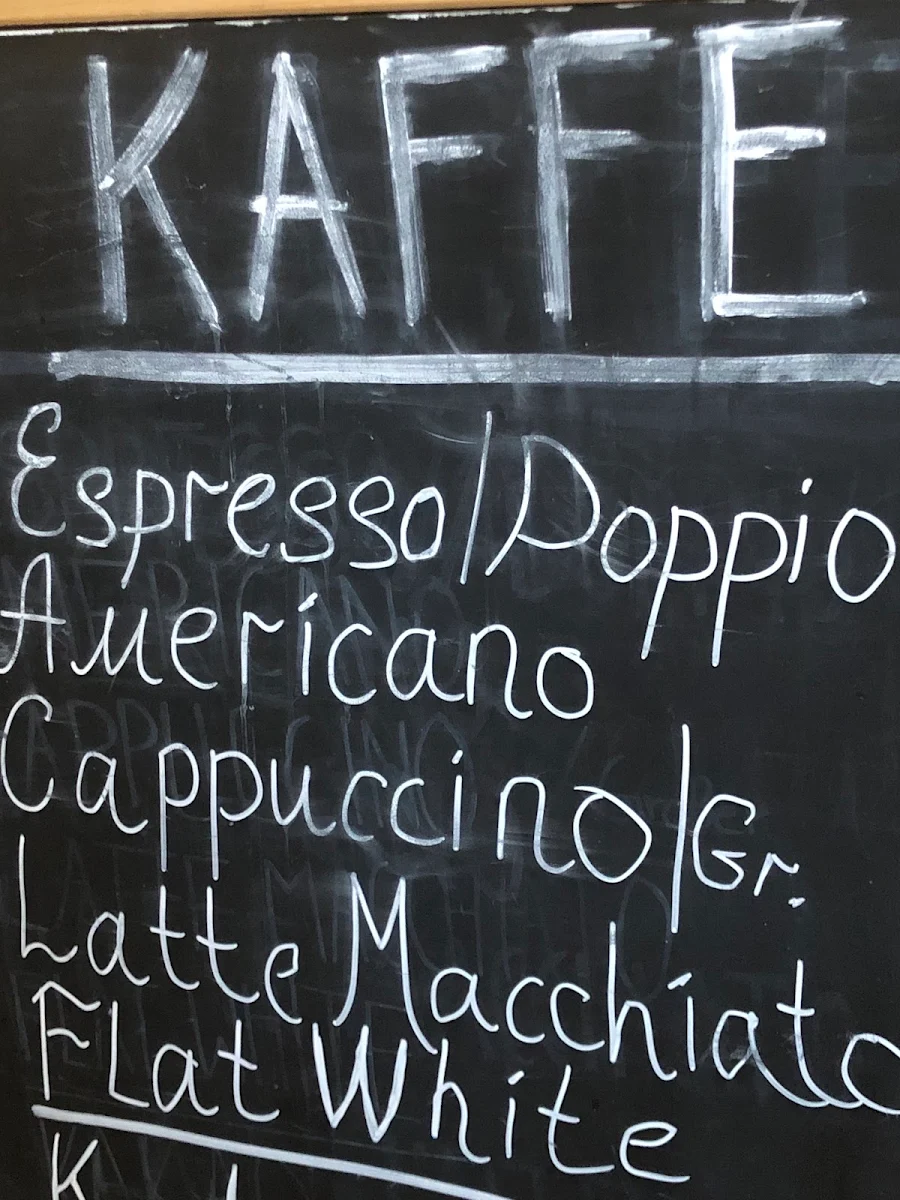 KAFFE
Espresso/Doppio
Americano
Cappuccino/Gr.
Latte Macchiato
Flat White